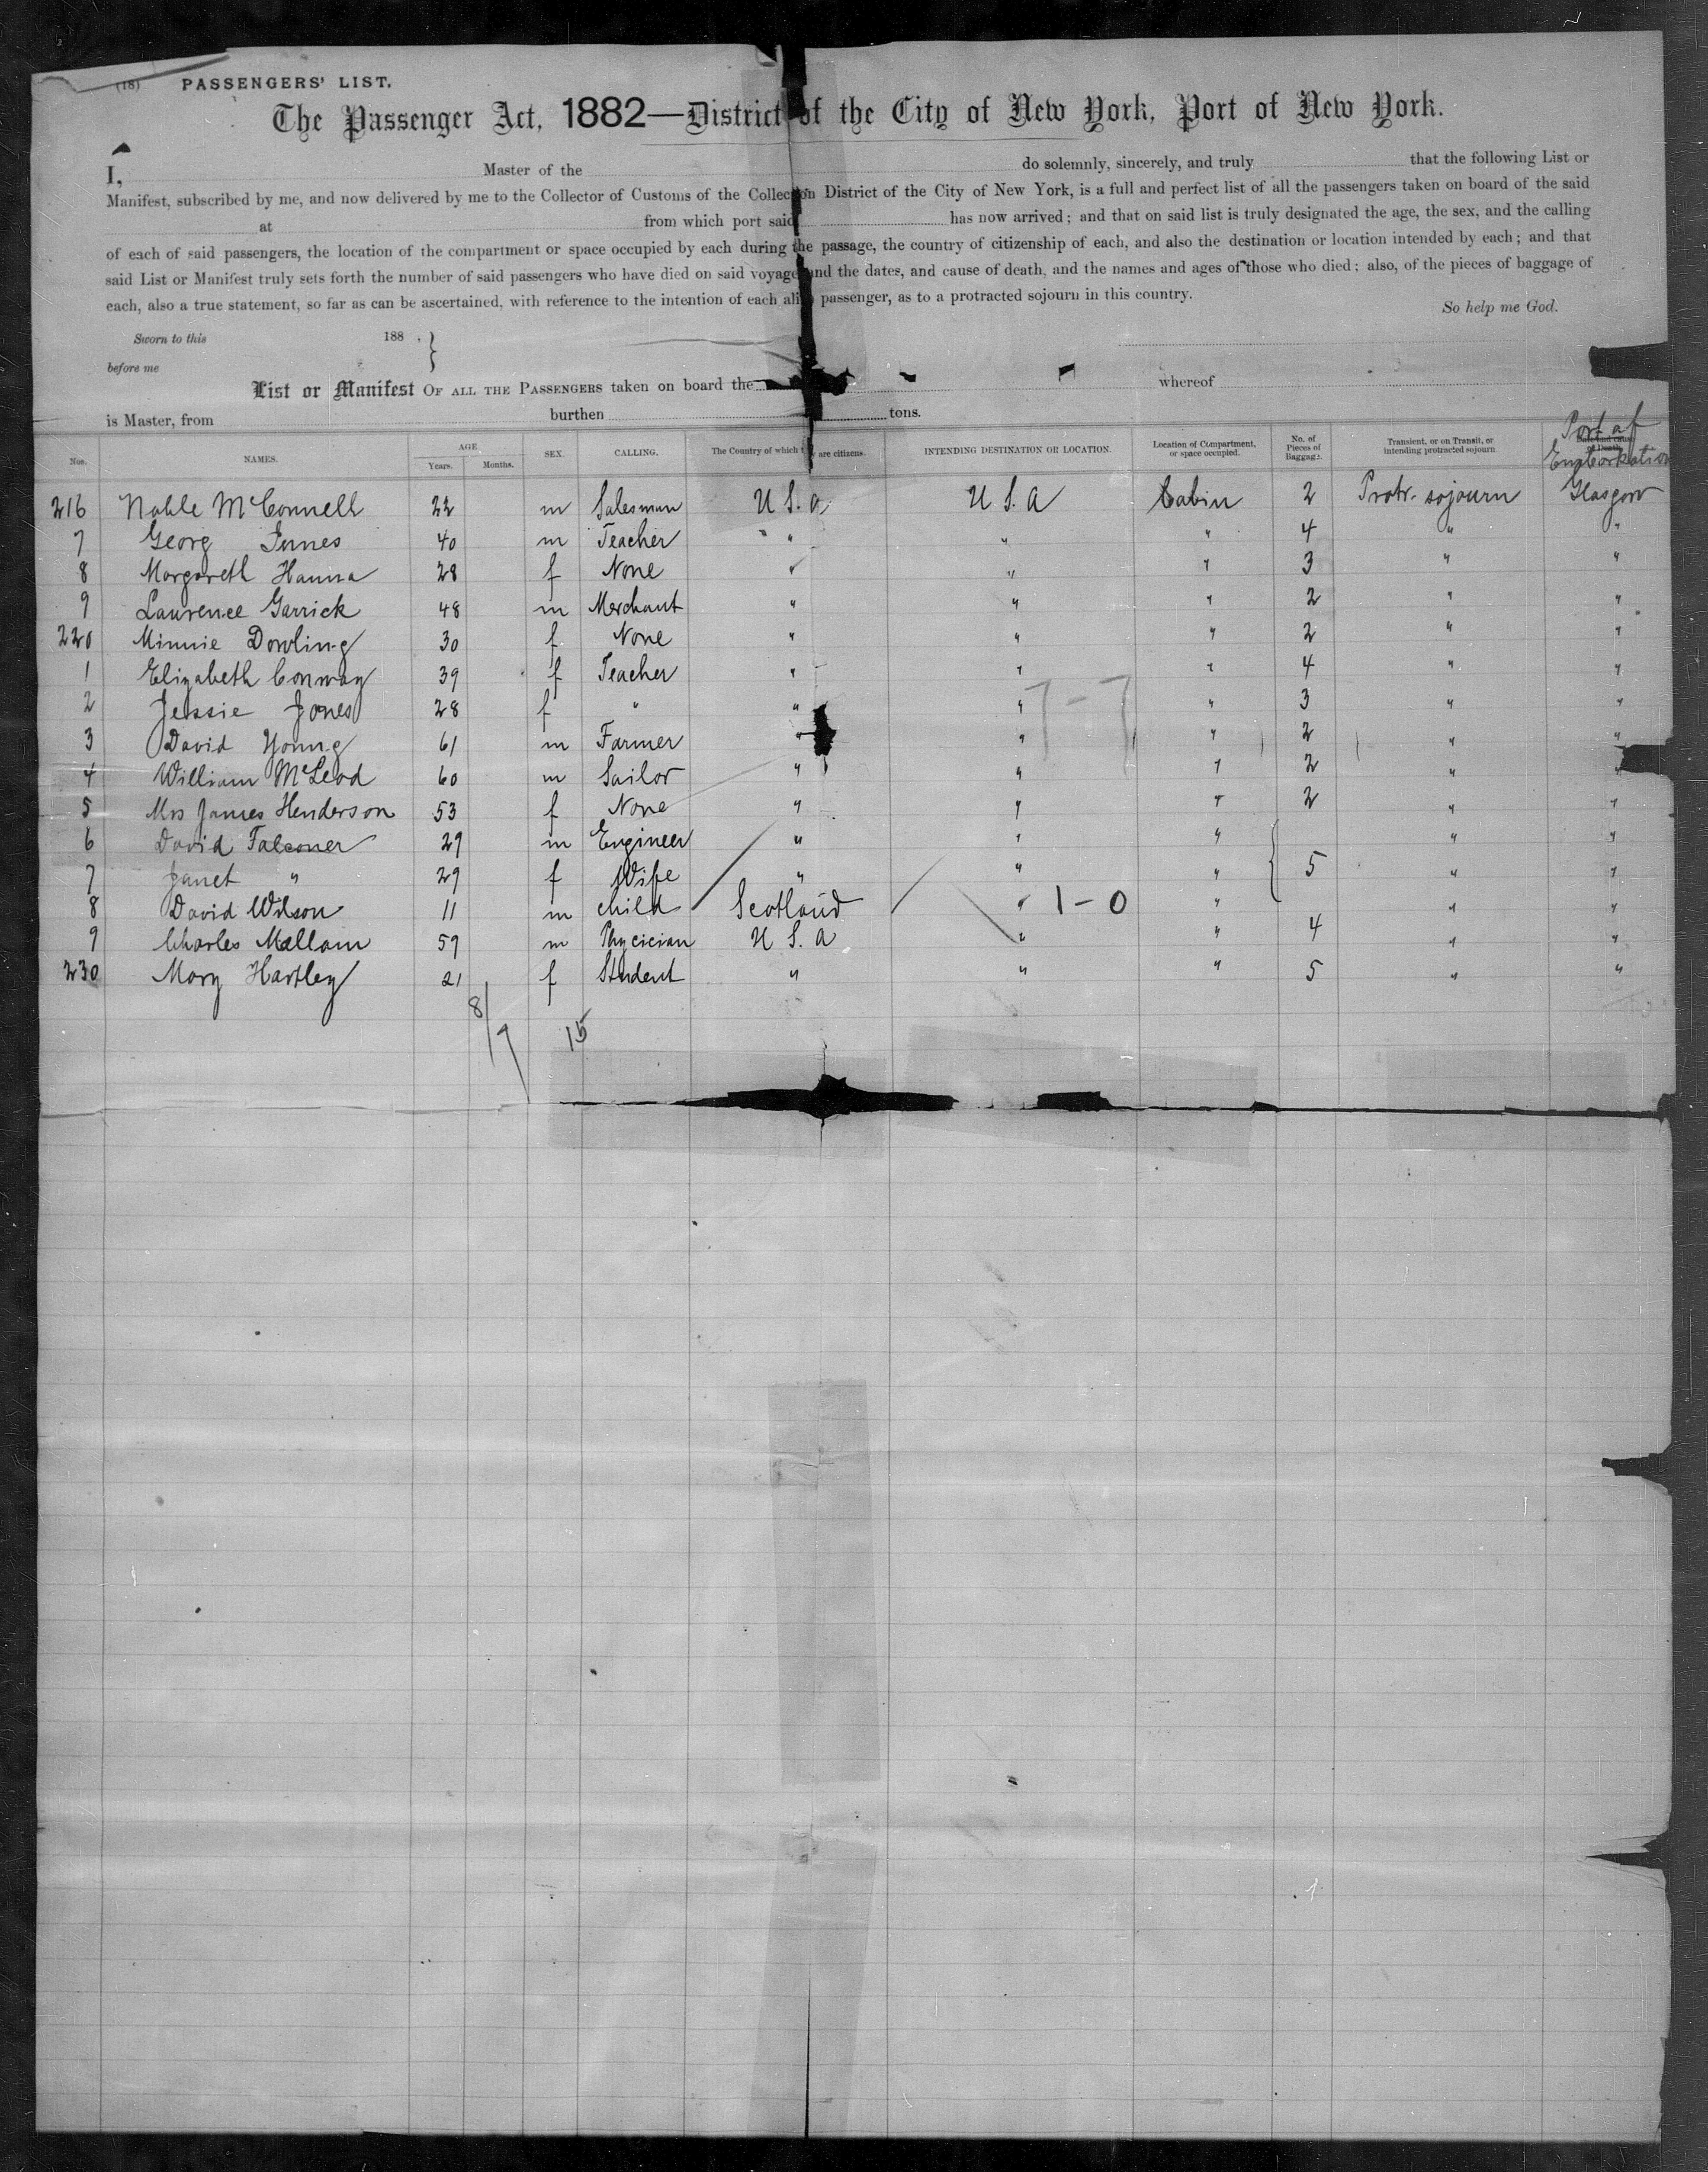 (18) PASSENGERS' LIST.
The Passenger Act, 1882—District of the City of New York, Port of New York.
I, Master of the do solemnly, sincerely, and truly that the following List or
Manifest, subscribed by me, and now delivered by me to the Collector of Customs of the Collection District of the City of New York, is a full and perfect list of all the passengers taken on board of the said
at from which port said has now arrived; and that on said list is truly designated the age, the sex, and the calling
of each of said passengers, the location of the compartment or space occupied by each during the passage, the country of citizenship of each, and also the destination or location intended by each; and that
said List or Manifest truly sets forth the number of said passengers who have died on said voyage and the dates, and cause of death, and the names and ages of those who died; also, of the pieces of baggage of
each, also a true statement, so far as can be ascertained, with reference to the intention of each alien passenger, as to a protracted sojourn in this country.
So help me God.
Sworn to this 188 , }
before me
List or Manifest OF ALL THE PASSENGERS taken on board the whereof
is Master, from burthen tons.
Nos. NAMES. AGE Years. Months. SEX. CALLING. The Country of which they are citizens. INTENDING DESTINATION OR LOCATION. Location of Compartment, or space occupied. No. of Pieces of Baggage. Transient, or on Transit, or intending protracted sojourn Port of Embarkation
216 Noble McConnell 22 m Salesman U S. A U S. A Cabin 2 Protr. sojourn Glasgow
7 Georg Innes 40 m Teacher " " " 4 " "
8 Margareth Hanna 28 f None " " " 3 " "
9 Laurence Garrick 48 m Merchant " " " 2 " "
220 Minnie Dowling 30 f None " " " 2 " "
1 Elizabeth Conway 39 f Teacher " " " 4 " "
2 Jessie Jones 28 f " " " " 3 " "
3 David Young 61 m Farmer " " " 2 " "
4 William McLeod 60 m Sailor " " " 2 " "
5 Mrs James Henderson 53 f None " " " 2 " "
6 David Falconer 29 m Engineer " " " " "
7 Janet " 29 f Wife " " " 5 " "
8 David Wilson 11 m child Scotland " 1-0 " " "
9 Charles Mallam 59 m Phycician U S. A " " 4 " "
230 Mary Hartley 21 f Student " " " 5 " "
7-7
8/7 15